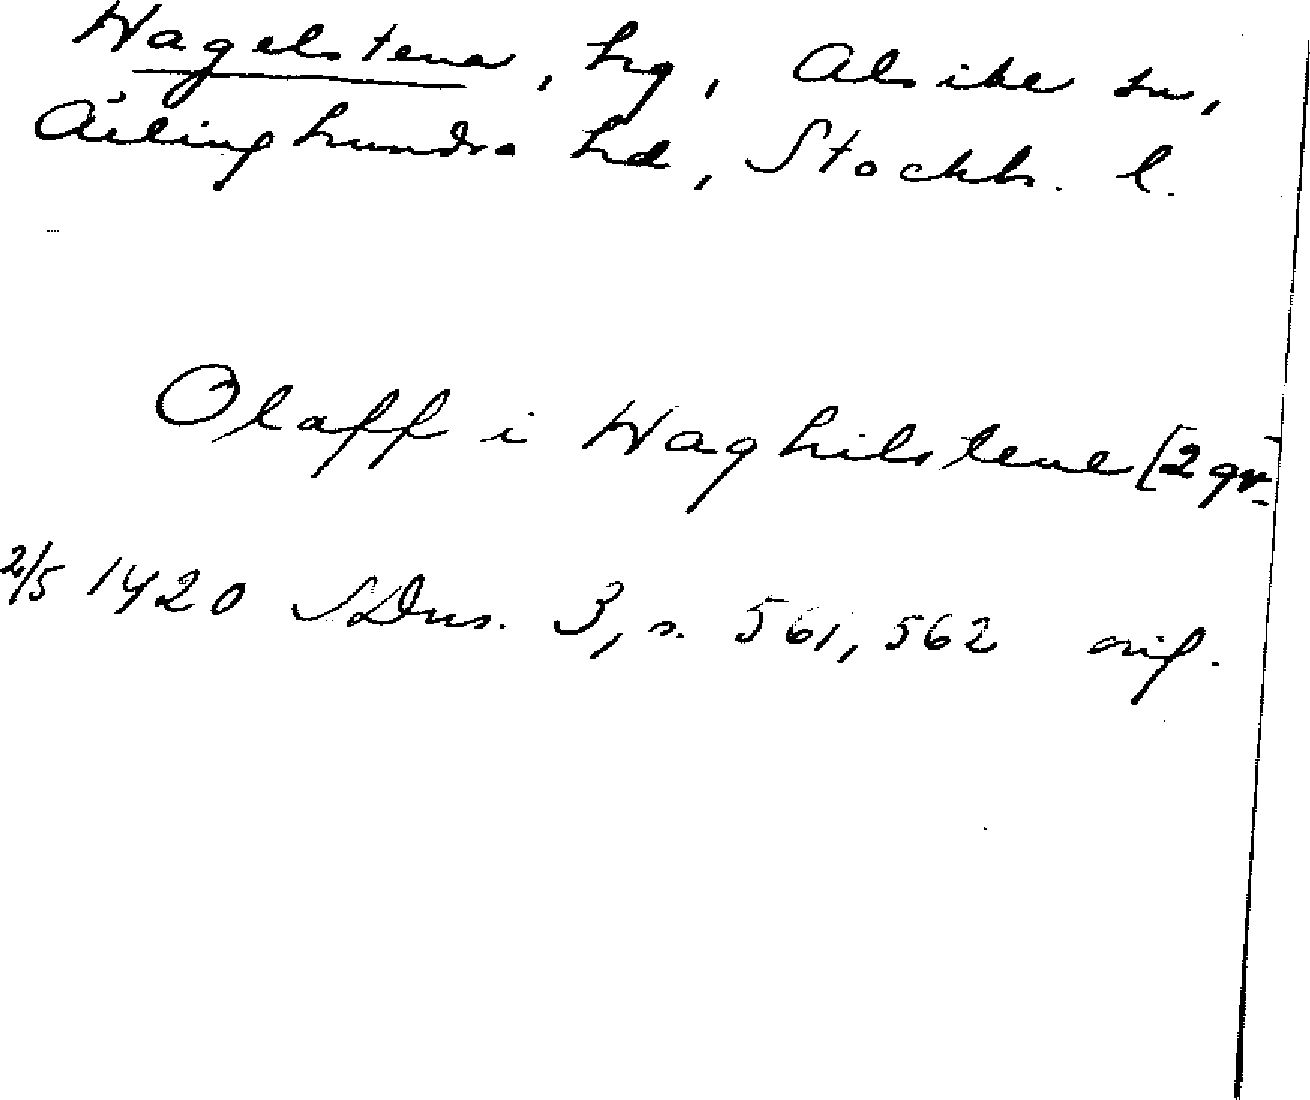 Wagelstena, hg, Alsike sn,
Ärlinghundra hd, Stockh. l.
Olaff i Waghilstene [2 gr]
2/5 1420 SDns. 3, s. 561, 562 orig.